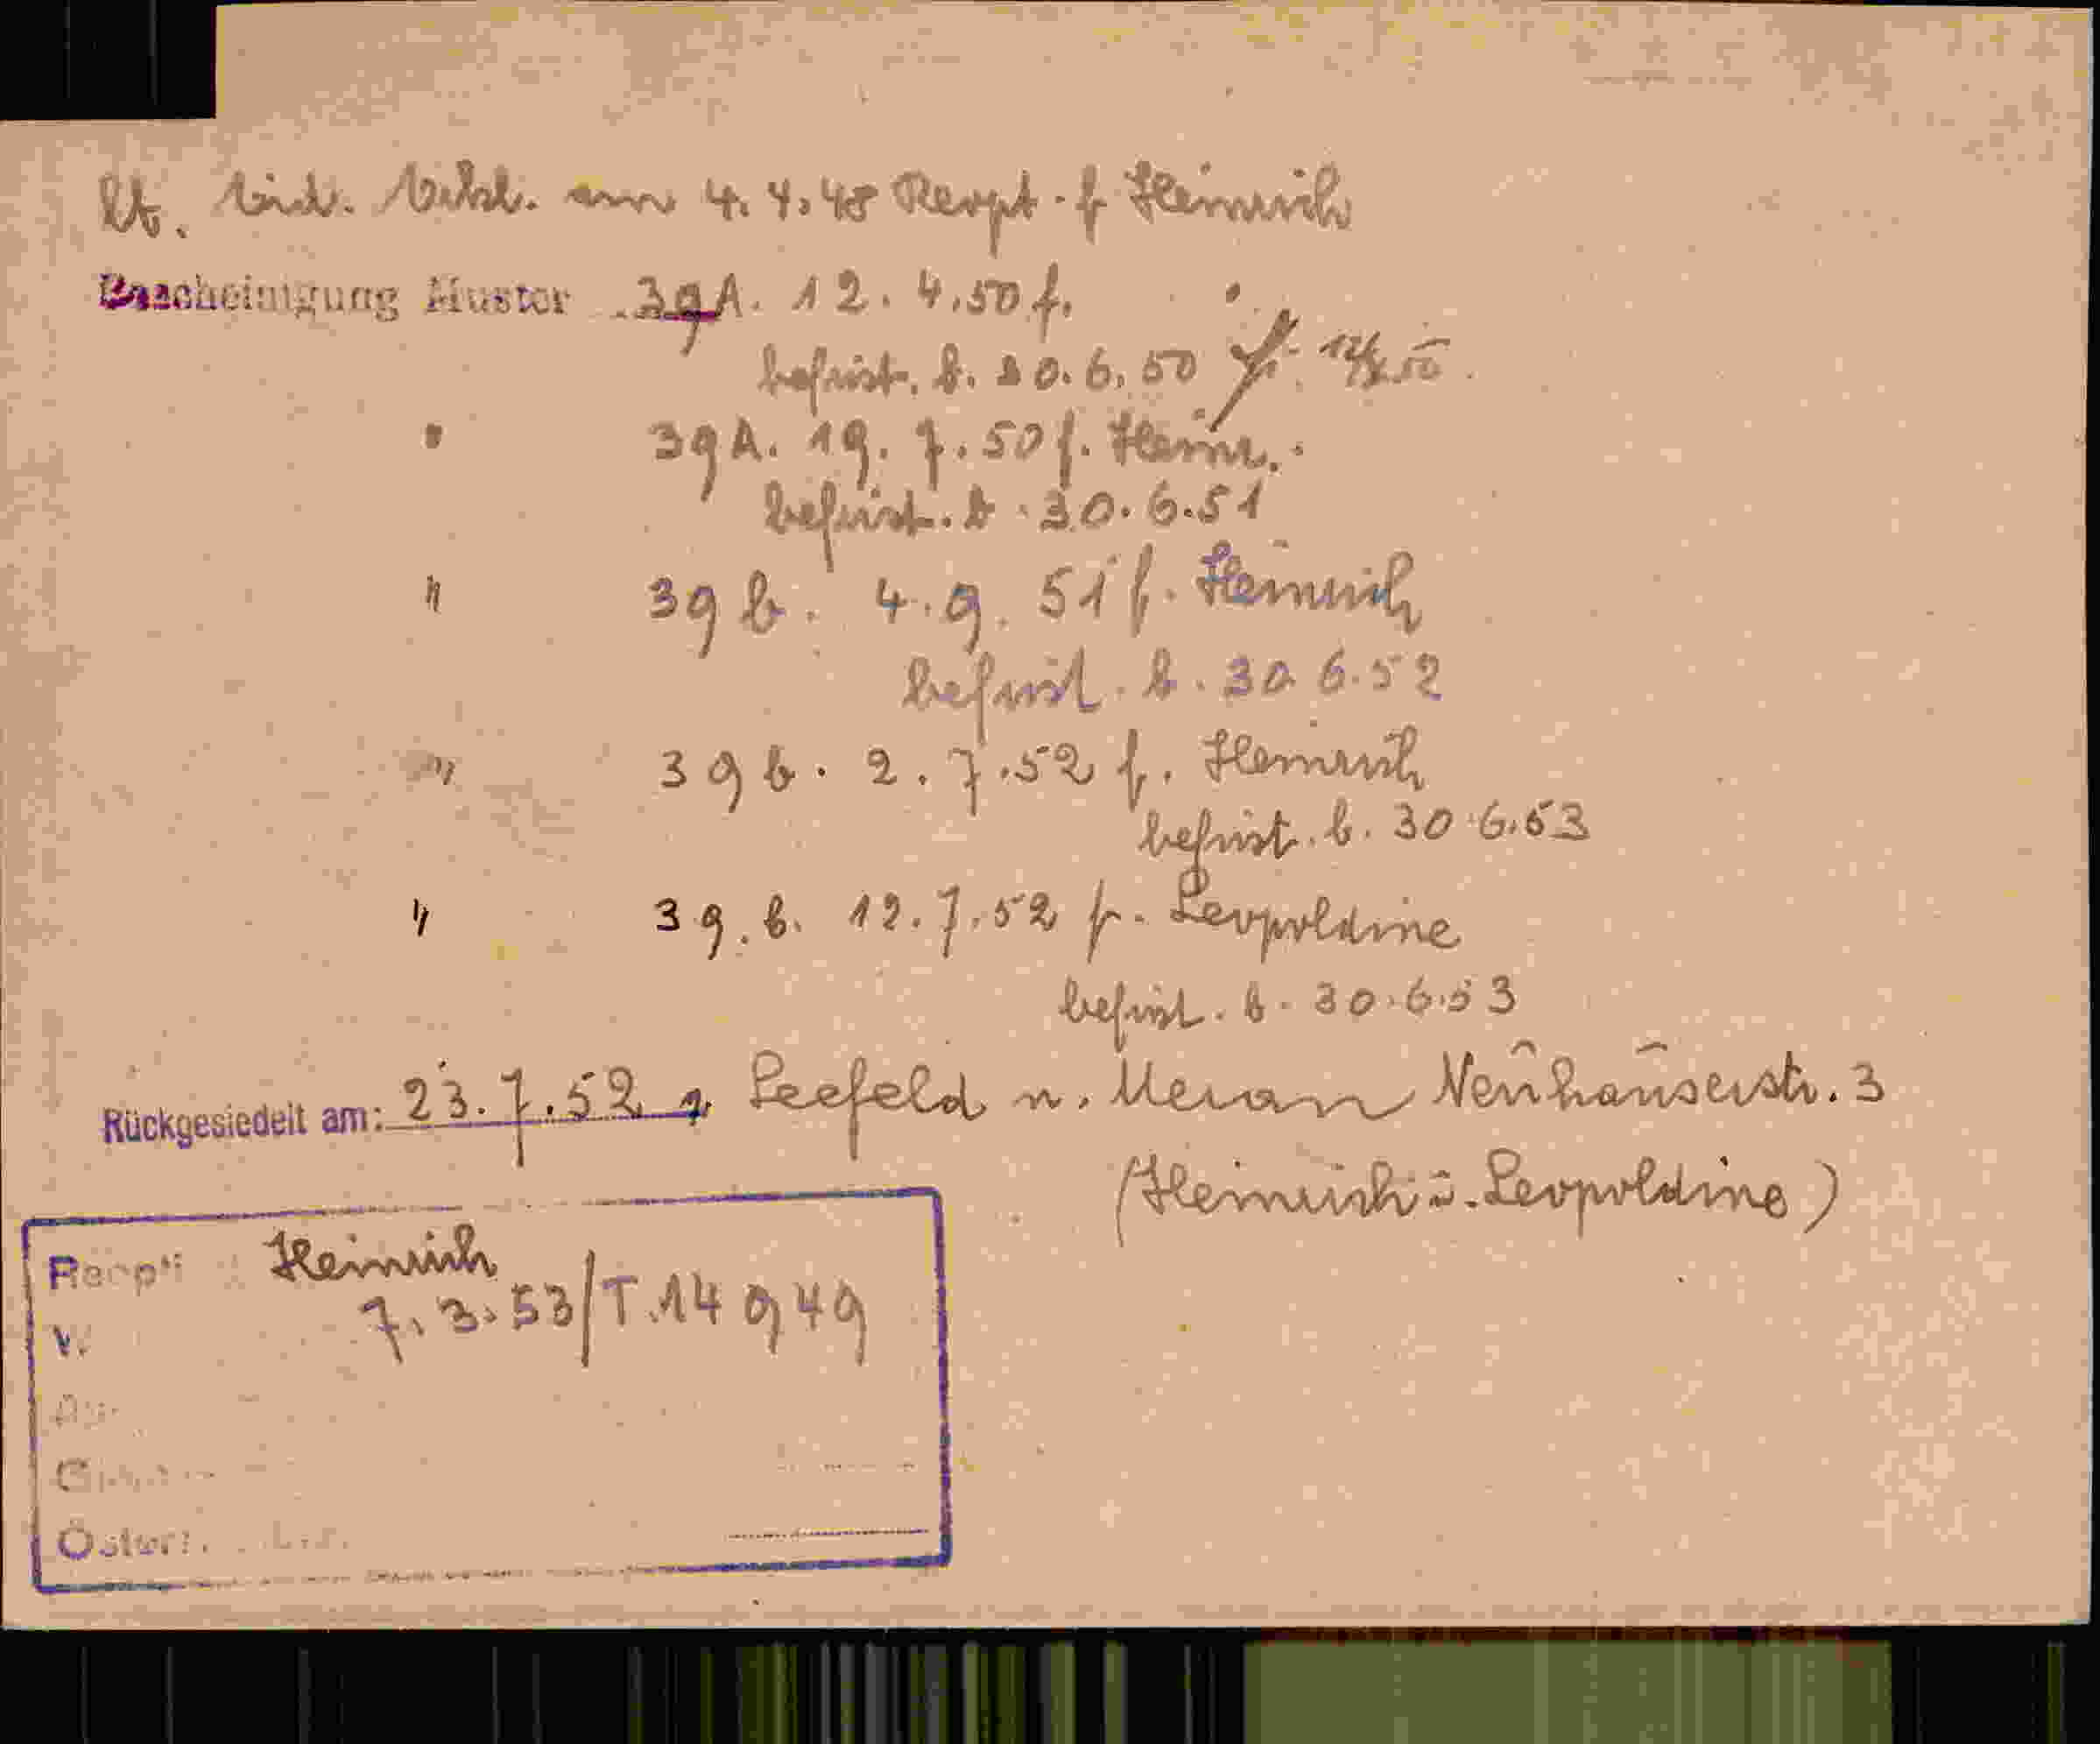 lt. eid. Erkl. am 4.4.48 Reopt. f Heinrich
Bescheinigung Muster 39A. 12.4.50 f.
befrist. b. 30.6.50
" 39A. 19.7.50 f. Heinr.
befrist. b. 30.6.51
" 39 b. 4.9.51 f. Heinrich
befrist. b. 30.6.52
" 39 b. 2.7.52 f. Heinrich
befrist. b. 30.6.53
" 39.b. 12.7.52 f. Leopoldine
befrist. b. 30.6.53
Rückgesiedelt am: 23.7.52 v. Seefeld n. Meran Neuhauserstr. 3
(Heinrich u. Leopoldine)
Reopt Heinrich
7.3.53/T.14949
V.
Österr.